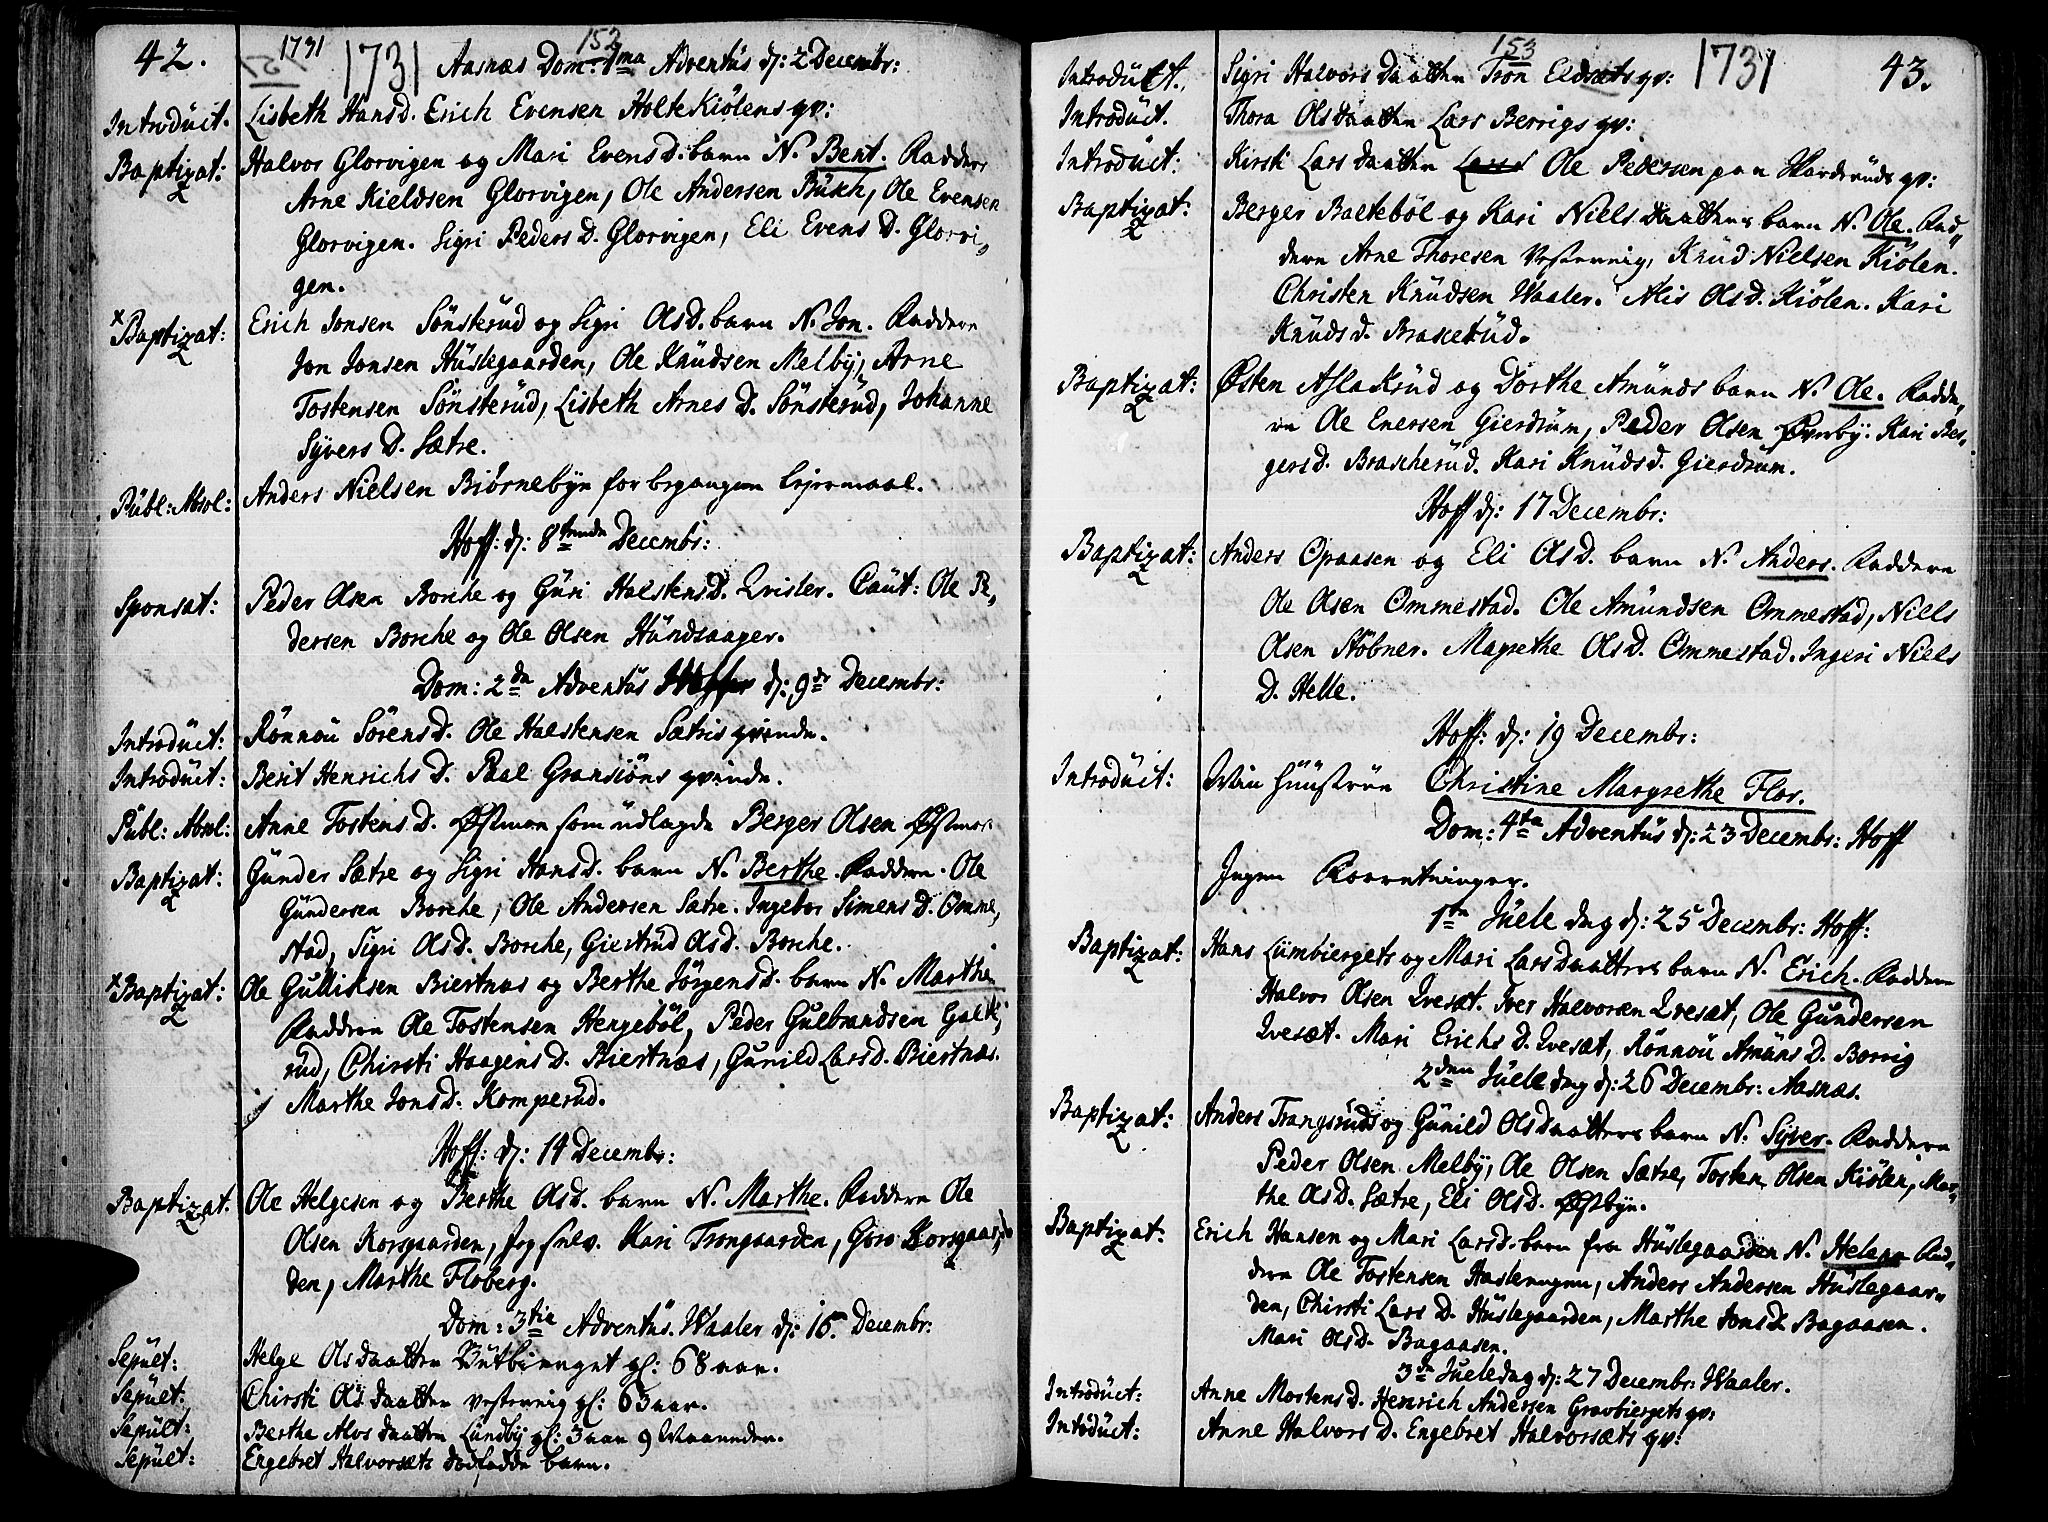 42. 1731 1731 152
Aasnæs Dom: 1ma Adventüs d: 2 Decembr:
Introdüct. Lisbeth Hansd. Erich Evensen Holte Kiölens qv:
Baptizat: Halvor Glorvigen og Mari Evens D. barn N. Bent. Faddere
Arne Kieldsen Glorvigen, Ole Andersen Büsk, Ole Evensen
Glorvigen. Sigri Peders D. Glorvigen, Eli Evens D. Glorvi,,
gen.
x Baptizat: Erich Jonsen Sönsterüd og Sigri Olsd. barn N. Jon. Faddere
Jon Jonsen Hüslegaarden, Ole Knüdsen Melby, Arne
Tostensen Sönsterüd, Lisbeth Arnes D. Sönsterüd, Johanne
Syvers D. Sætre.
Pübl: Absol: Anders Nielsen Biörnebye for begangen Lejermaal.
Hoff: d: 8tende Decembr:
Sponsat: Peder Olsen Borche og Güri Halstens D. Qvisler. Caüt: Ole Pe,
dersen Borche og Ole Olsen Hündsaager.
Dom: 2da Adventüs d: 9de Decembr:
Introdüct: Rönnoü Sörens D. Ole Halstensen Sætris qvinde.
Introdüct: Berit Henrichs D. Paal Gransiöns qvinde.
Pübl: Absol: Anne Tostens D. Østmoe som üdlagde Berger Olsen Østmoe.
Baptizat: Günder Sætre og Sigri Hansd. barn N. Berthe. Faddere. Ole
Gündersen Borche, Ole Andersen Sætre. Ingebor Simens D. Omme,
stad, Sigri Olsd. Borche, Giertrüd Olsd. Borche.
x Baptizat: Ole Gulliksen Biertnæs og Berthe Jörgensd. barn N. Marthe
Faddere Ole Tostensen Hengeböl, Peder Gulbrandsen Galte,
rüd, Chirsti Haagens D. Biertnæs, Günild Larsd. Biertnæs.
Marthe Jonsd. Komperüd.
Hoff: d: 14 Decembr:
Baptizat. Ole Helgesen og Berthe Olsd. barn N. Marthe. Faddere Ole
Olsen Korsgaarden, Jeg selv. Kari Trongaarden, Goro Korsgaar,
den, Marthe Floberg.
Dom: 3tia Adventüs. Waaler d: 16. Decembr:
Sepült: Helge Olsdaatter gl: 68 aar.
Sepült: Chirsti Olsdaatter Vestervig gl: 63 aar.
Sepült: Berthe Alvs daatter Lündby gl: 3 aar 9 Maaneder.
Sepült: Engebret Halvorsæts dödfödde barn.
153 1731 43.
Introdüct. Sigri Halvors daatter Tron Eldsæts qv:
Introdüct. Thora Olsdaatter Lars Berrigs qv:
Introdüct: Kirsti Lars daatter Ole Pedersen paa Harderüds qv:
Baptizat: Berger Balteböl og Kari Niels daatters barn N. Ole. Fad,,
dere Arne Thoresen Vestervig, Knüd Nielsen Kiölen.
Christen Knüdsen Waaler. Alis Olsd. Kiölen. Kari
Knüds d. Braskerüd.
Baptizat: Østen Aslakrüd og Dorthe Amünds barn N. Ole. Fadde,
re Ole Enersen Gierdrüm, Peder Olsen Øverby. Kari Ber,
gersd. Brascherüd. Kari Knüdsd. Gierdrüm.
Hoff d: 17 Decembr:
Baptizat: Anders Opaasen og Eli Olsd. barn N. Anders. Faddere
Ole Olsen Ommestad. Ole Amündsen Ommestad, Niels
Olsen Stöbner. Magrethe Ols D. Ommestad. Ingeri Niels
D. Helle.
Hoff: d: 19 Decembr:
Introdüct: Min Hüüstrüe Christine Margrethe Flor.
Dom: 4ta Adventüs d: 23 Decembr: Hoff
Ingen Forretninger.
1te Jüele dag d: 25 Decembr: Hoff:
Baptizat: Hans Lümbiergets og Mari Lars daatters barn N. Erich. Faddere
Halvor Olsen Qvesæt. Iver Halvorsen Qvesæt, Ole Gündersen
Qvesæt. Mari Erichs D. Qvesæt, Rönnoü Amüns D. Borrig
2den Jüele dag d: 26 Decembr: Aasnæs.
Baptizat: Anders Trangsrüds og Günild Olsdaatters barn N. Syver. Faddere
Peder Olsen Melby, Ole Olsen Sætre, Tosten Olsen Kiölen, Mar,
the Olsd. Sætre, Eli Olsd. Østbye.
Baptizat: Erich Hansen og Mari Larsd. barn fra Hüslegaarden N. Helene Fad,
dere Ole Tostensen Haslerengen, Anders Andersen Hüslegaar,,
den, Chirsti Lars D. Hüslegaarden, Marthe Jons D Bagaasen.
Mari Olsd. Bagaasen.
3de Jüeledag d: 27 Decembr: Waaler.
Introdüct: Anne Mortens D. Henrich Andersen Gravbiergets qv:
Introdüct: Anne Halvors D. Engebret Halvorsæts qv: